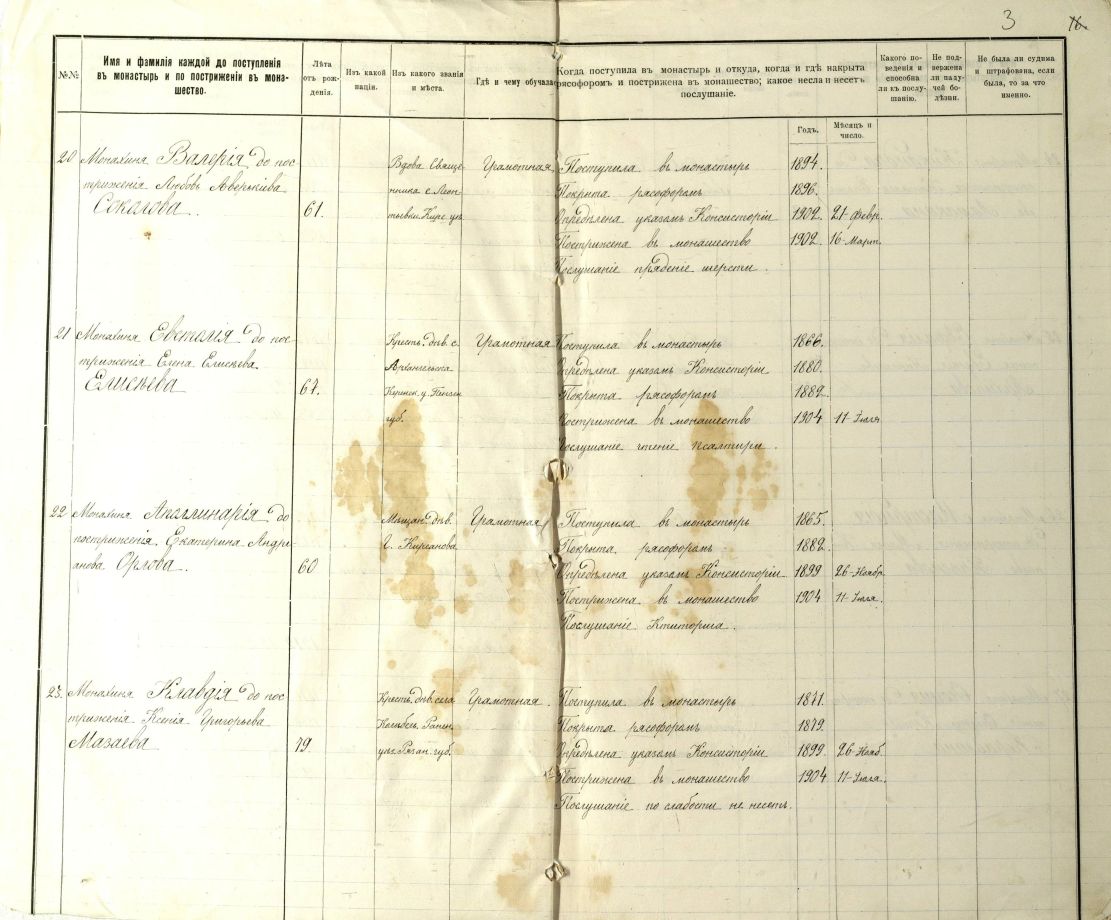 3
16
№№
Имя и фамилія каждой до поступленія
въ монастырь и по постриженіи въ мона-
шество.
Лѣта
отъ рож-
денія.
Изъ какой
націи.
Изъ какого званія
и мѣста.
Гдѣ и чему обучалась
Когда поступила въ монастырь и откуда, когда и гдѣ накрыта
рясофоромъ и пострижена въ монашество; какое несла и несетъ
послушаніе.
Какого по-
веденія и
способна
ли къ послу-
шанію.
Не под-
вержена
ли паду-
чей бо-
лѣзни.
Не была ли судима
и штрафована, если
была, то за что
именно.
Годъ.
Мѣсяцъ и
число.
20 Монахиня Валерія до пос
Вдова Священ
Грамотная
Поступила въ монастырь 1894.
триженія Любовь Аверкіева
нника с.
Покрыта рясофоромъ 1896.
Соколова.. 61.
Опредѣлена указомъ Консисторіи 1902. 21 Февр.
Пострижена въ монашество 1902. 16 Март.
Послушаніе пряденіе шерсти.
21 Монахиня Евстолія до пос
Кресть. дѣв. с.
Грамотная
Поступила въ монастырь 1866.
триженія Елена Елисѣева
Архангельска
Опредѣлена указомъ Консисторіи 1880.
Елисѣева 64.
у. Пензен
Покрыта рясофоромъ 1882.
губ.
Пострижена въ монашество 1904 11 Іюля
Послушаніе чтеніе псалтири.
22 Монахиня Аполлинарія до
Мѣщан. дѣв.
Грамотная
Поступила въ монастырь 1865.
постриженія Екатерина Андрі
г. Кирсанова
Покрыта рясофоромъ 1882.
анова Орлова.. 60
Опредѣлена указомъ Консисторіи 1899 26 Ноябр
Пострижена въ монашество 1904 11 Іюля.
Послушаніе Ктиторша.
23. Монахиня Клавдія до пос
Кресть. дѣв. села
Грамотная.
Поступила въ монастырь 1871.
триженія Ксенія Григорьева
Ранен.
Покрыта рясофоромъ 1879.
Мазаева 79.
уѣз. Рязан. губ.
Опредѣлена указомъ Консисторіи 1899 26 Нояб.
Пострижена въ монашество 1904 11 Іюля.
Послушаніе по слабости не несетъ.